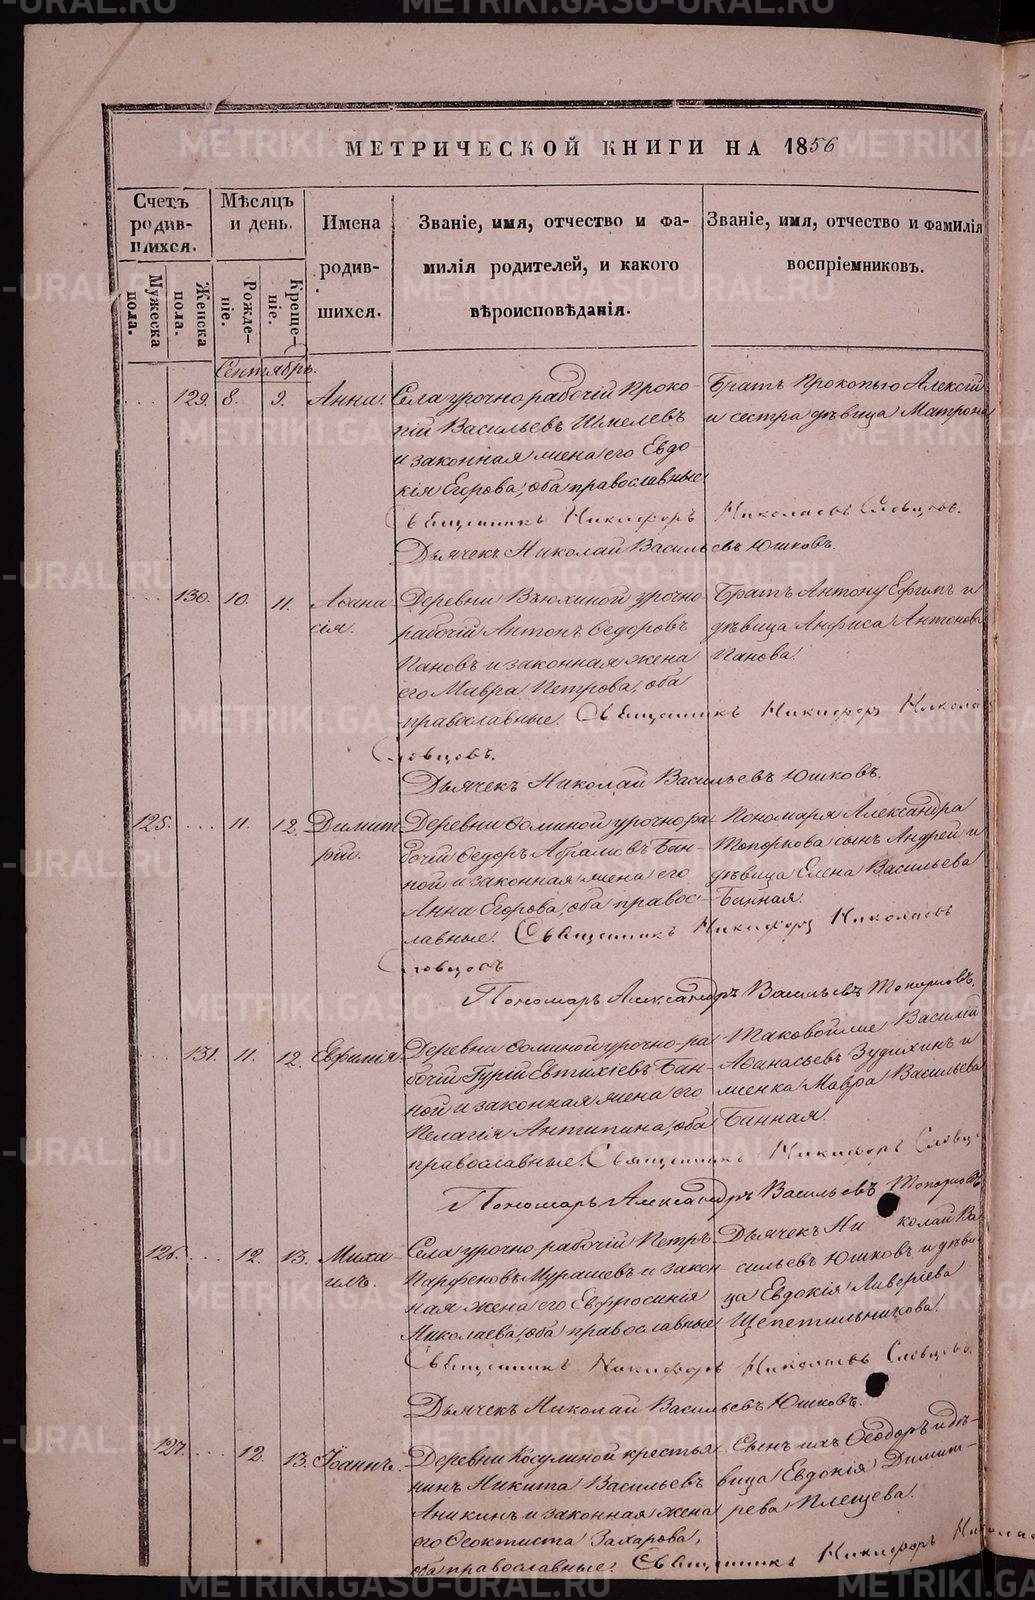 МЕТРИЧЕСКОЙ КНИГИ НА 1856
Счетъ родившихся.
Мужеска пола.
Женска пола.
Мѣсяцъ и день.
Рожденіе.
Крещеніе.
Имена родившихся.
Званіе, имя, отчество и фамилія родителей, и какого вѣроисповѣданія.
Званіе, имя, отчество и фамилія воспріемниковъ.
Сентябрь.
129. 8. 9. Анна.
Села урочно рабочій Проко-
пій Васильевъ Шмелевъ
и законная жена его Евдо
кія Егорова, оба православные
Братъ Прокопью Алексій
и сестра дѣвица Матрона
Священникъ Никифоръ Николаевъ Словцовъ.
Дьячекъ Николай Васильевъ Юшковъ.
130. 10. 11. Аѳана
сія.
Деревни Вьюхиной урочно-
рабочій Антонъ Ѳедоровъ
Пановъ и законная жена
его Мавра Петрова, оба
православные.
Братъ Антону Ефимъ и
дѣвица Анфиса Антонова
Панова.
Священникъ Никифоръ Николае
Словцовъ.
Дьячекъ Николай Васильевъ Юшковъ.
125. 11. 12. Димит
рій.
Деревни Ѳоминой урочно ра-
бочій Ѳедоръ Абрамовъ Бан-
ной и законная жена его
Анна Егорова, оба правос-
лавные.
Пономаря Александра
Топоркова сынъ Андрей и
дѣвица Елена Васильева
Банная.
Священникъ Никифоръ Николаевъ
Словцовъ
Пономарь Александръ Васильевъ Топорковъ.
131. 11. 12. Евфимія
Деревни Ѳоминой урочно-ра-
бочій Гурій Евтихіевъ Бан-
ной и законная жена его
Пелагія Антипина, оба
православные.
Таковойже Василій
Аѳанасьевъ Зудихинъ и
женка Мавра Васильева
Банная.
Священникъ Никифоръ Словцо
Пономарь Александръ Васильевъ Топорковъ
126. 12. 13. Миха
илъ.
Села урочно рабочій Петръ
Парфеновъ Мурашевъ и закон
ная жена его Евфросинія
Николаева, оба православные
Дьячекъ Ни колай Ва
сильевъ Юшковъ и дѣви
ца Евдокія Ливеріева
Щепетильникова.
Священникъ Никифоръ Николаевъ Словцовъ.
Дьячекъ Николай Васильевъ Юшковъ.
127. 12. 13. Іоаннъ.
Деревни Косулиной крестья
нинъ Никита Васильевъ
Аникинъ и законная жена
его Ѳеоктиста Захарова,
оба православные.
Сынъ ихъ Ѳеодоръ и дѣ-
вица Евдокія Димит-
рева Плещева.
Священникъ Никифоръ Николае
METRIKI.GASO-URAL.RU